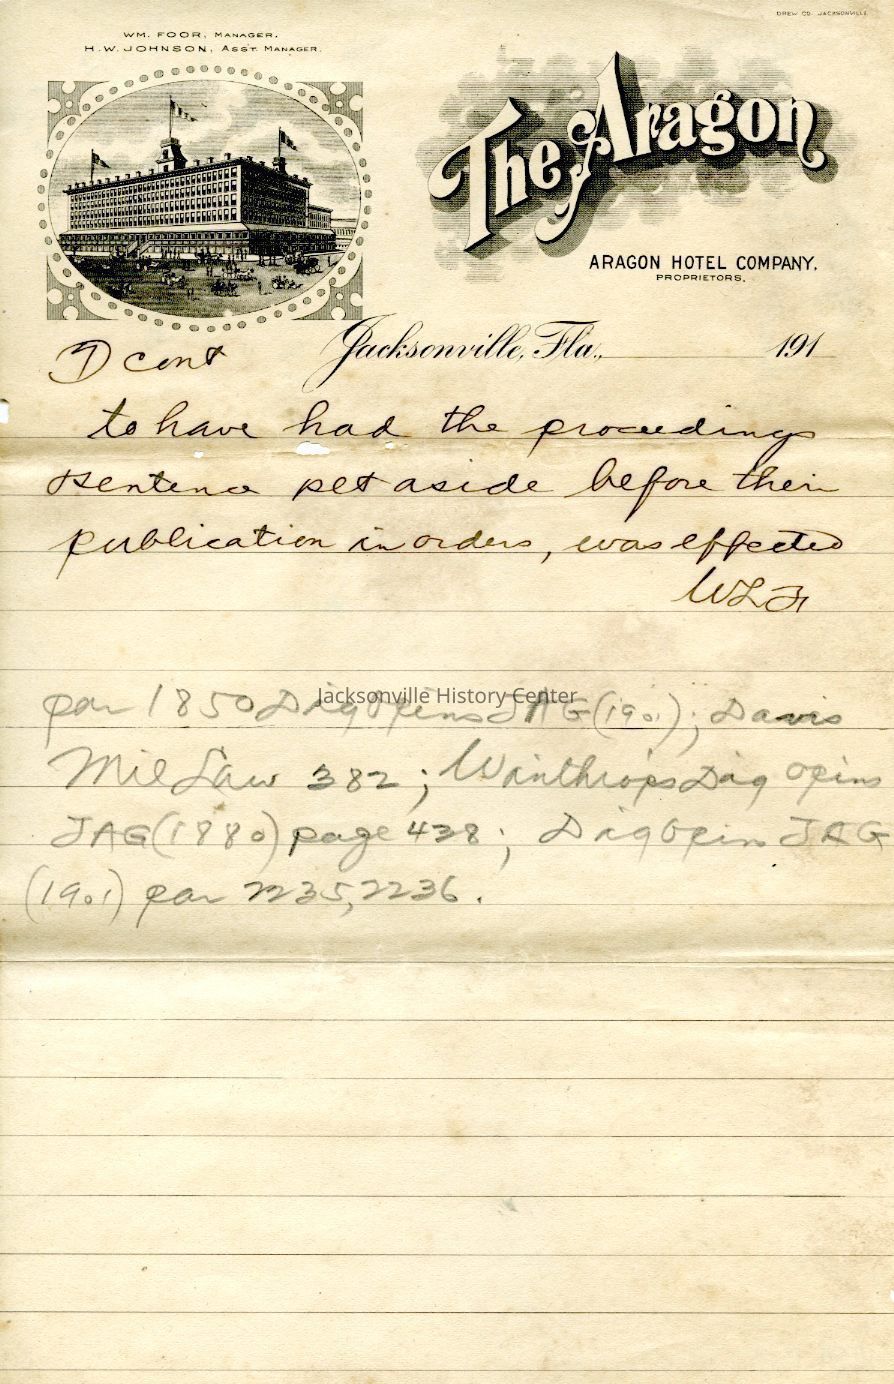 DREW CO. JACKSONVILLE.
WM. FOOR, MANAGER.
H. W. JOHNSON, ASST. MANAGER.
The Aragon
ARAGON HOTEL COMPANY,
PROPRIETORS.
Jacksonville, Fla., 191
D cont
to have had the proceedings
sentence set aside before their
publication in orders, was effected
WLF
Jacksonville History Center
par 1850 Dig Opins JAG (1901); Davis
Mil Law 382; Winthrops Dig opins
JAG (1880) page 428; Dig Opin JAG
(1901) par 2235, 2236.